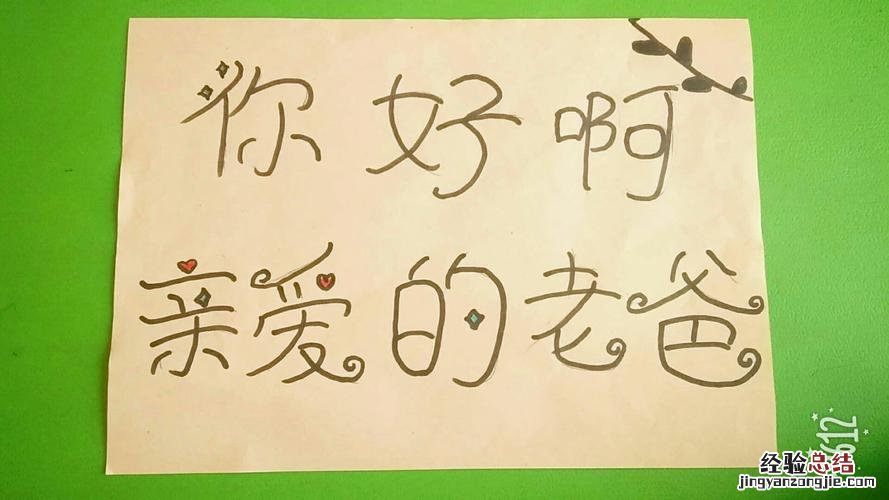 你好啊
亲爱的老爸
612
经验总结
jingyanzongjie.com